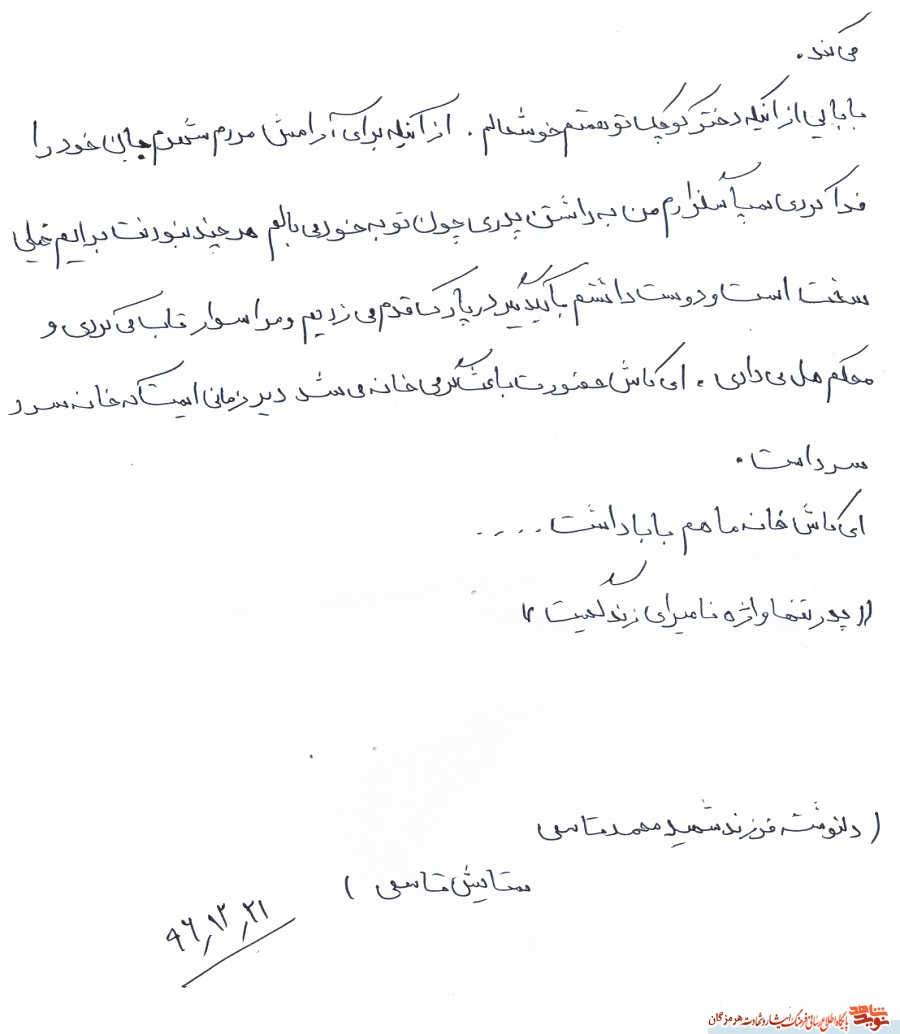 می‌کند.
بابایی از اینکه دختر کوچک تو هستم خوشحالم. از اینکه برای آرامش مردم شهرم جان خود را
فدا کردی سپاسگزارم من به داشتن پدری چون تو به خود می‌بالم هر چند نبودنت برایم خیلی
سخت است و دوست داشتم با یکدیگر در پارک قدم می‌زدیم و مرا سوار تاب می‌کردی و
محکم هل می‌دادی. ای کاش حضورت باعث گرمی خانه می‌شد دیر زمانی است که خانه سرد
سرد است.
ای کاش خانه ما هم بابا داشت.....
«پدر تنها واژه نامیرای زندگیست»
(دلنوشته فرزند شهید محمد قاسمی
ستایش قاسمی)
۹۶,۱۲,۲۱
نوید شاهد پایگاه اطلاع رسانی فرهنگ ایثار و شهادت هرمزگان